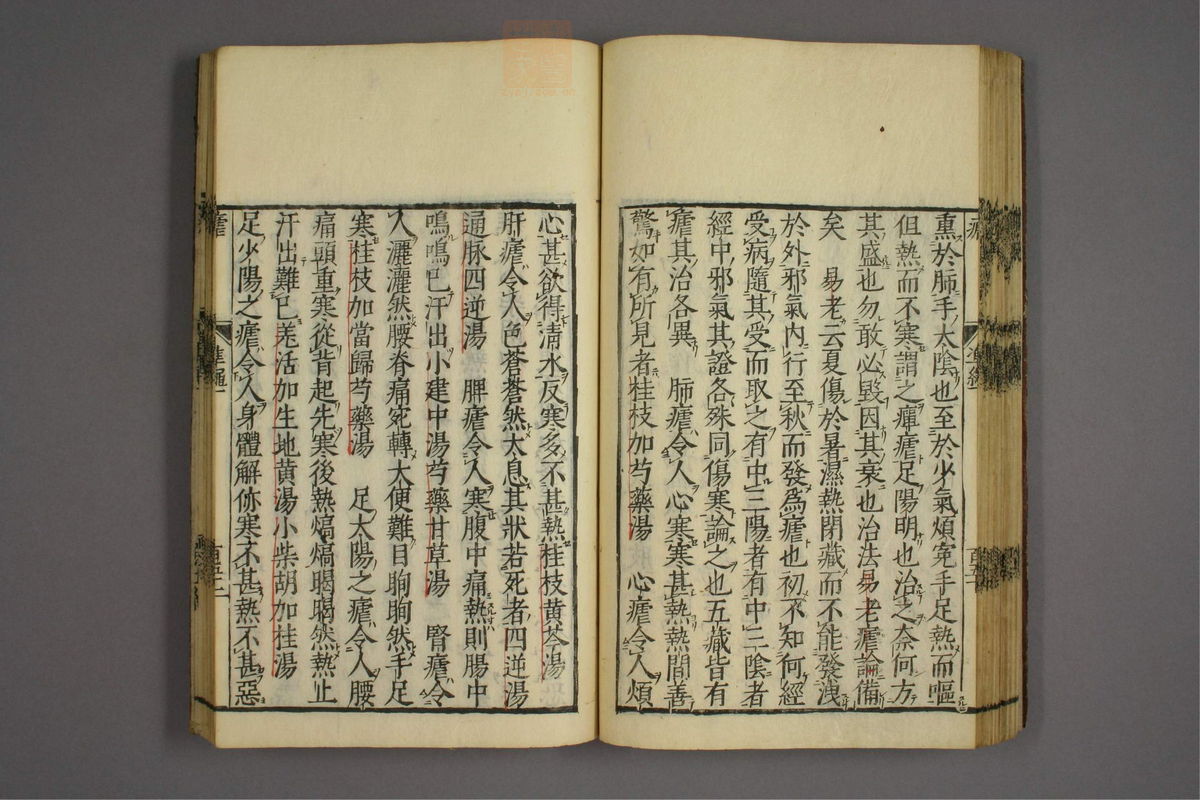 熏於肺手太陰也至於少氣煩寃手足熱而嘔
但熱而不寒謂之癉瘧足陽明也治之奈何方
其盛也勿敢必毀因其衰也治法易老瘧論備
矣　易老云夏傷於暑濕熱閉藏而不能發洩
於外邪氣内行至秋而發爲瘧也初不知何經
受病隨其受而取之有中三陽者有中三陰者
經中邪氣其證各殊同傷寒論之也五藏皆有
瘧其治各異　肺瘧令人心寒寒甚熱熱間善
驚如有所見者桂枝加芍藥湯　心瘧令人煩
心甚欲得淸水反寒多不甚熱桂枝黄芩湯
肝瘧令人色蒼蒼然太息其狀若死者四逆湯
通脉四逆湯　脾瘧令人寒腹中痛熱則腸中
鳴鳴已汗出小建中湯芍藥甘草湯　腎瘧令
人灑灑然腰脊痛宛轉大便難目眴眴然手足
寒桂枝加當歸芍藥湯　足太陽之瘧令人腰
痛頭重寒從背起先寒後熱熇熇暍暍然熱止
汗出難已羗活加生地黄湯小柴胡加桂湯
足少陽之瘧令人身體解㑊寒不甚熱不甚惡
瘧
準繩